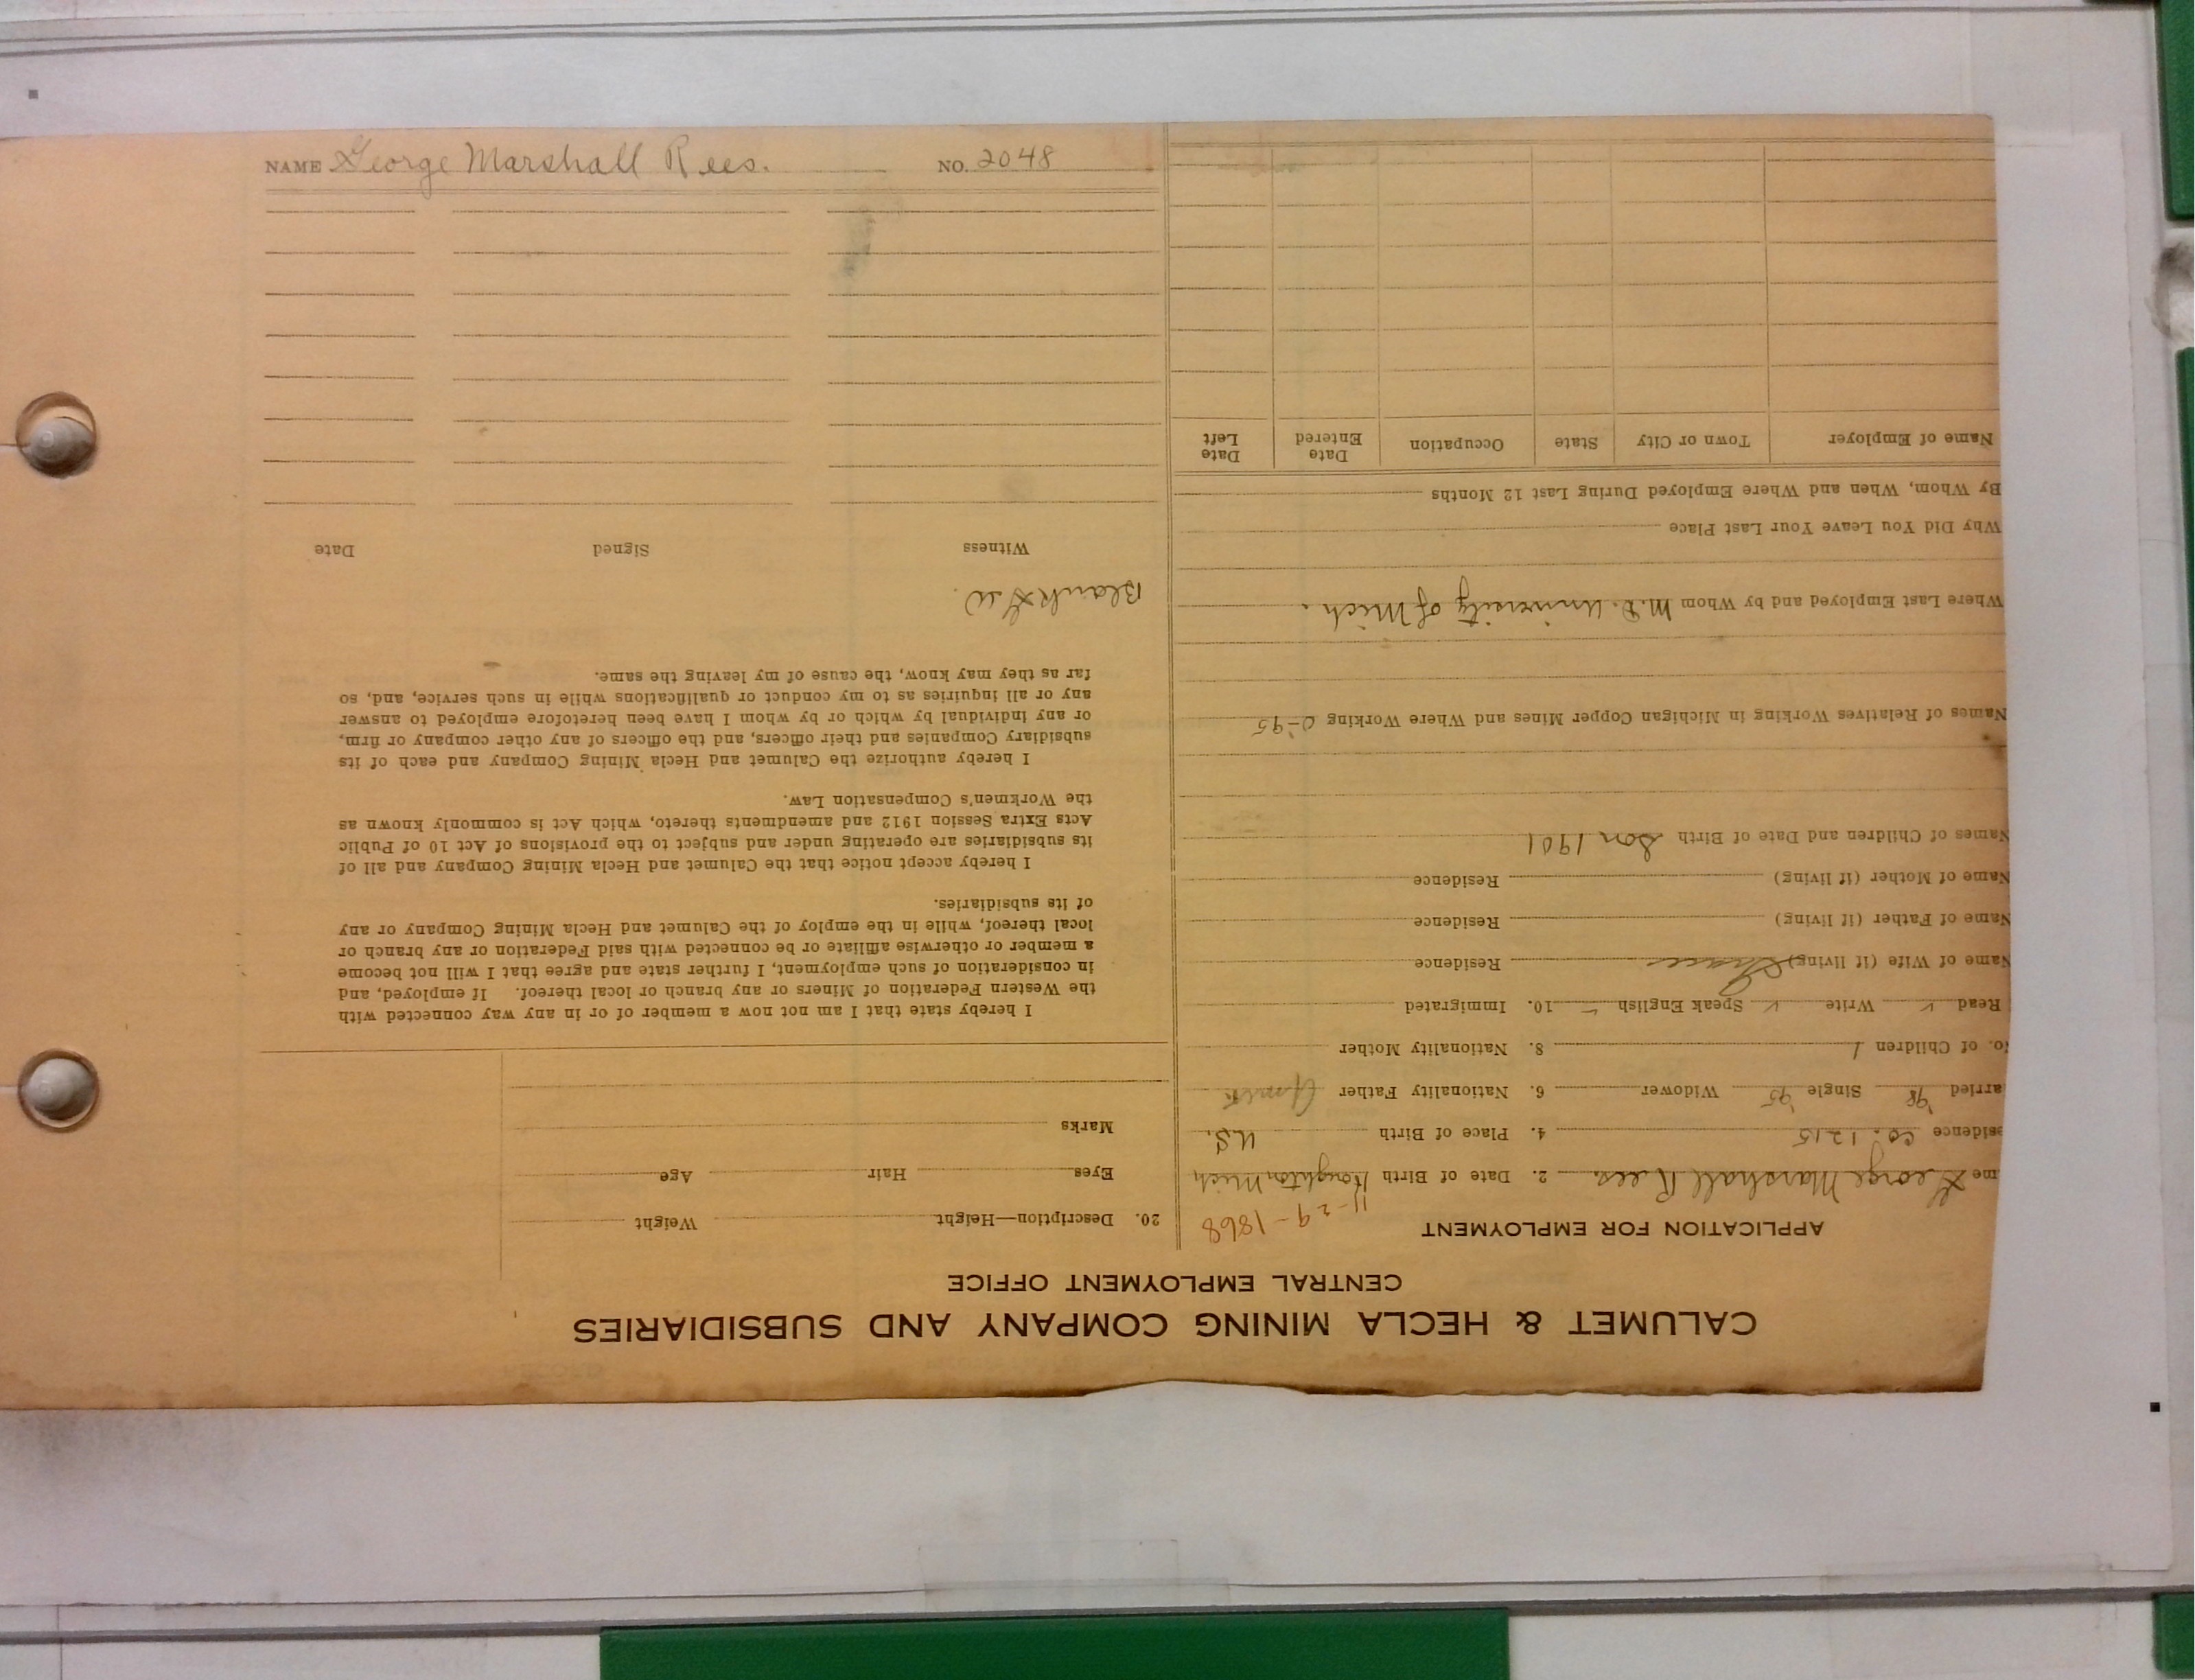 NAME George Marshall Rees. NO. 2048
CALUMET & HECLA MINING COMPANY AND SUBSIDIARIES
CENTRAL EMPLOYMENT OFFICE
APPLICATION FOR EMPLOYMENT
11-29-1868
me George Marshall Rees. 2. Date of Birth Houghton Mich
sidence Co. 1215 4. Place of Birth U.S.
arried '98 Single '95 Widower 6. Nationality Father
No. of Children 1 8. Nationality Mother
Read ✓ Write ✓ Speak English ✓ 10. Immigrated
Name of Wife (if living) Grace Residence
Name of Father (if living) Residence
Name of Mother (if living) Residence
Names of Children and Date of Birth Son 1901
Names of Relatives Working in Michigan Copper Mines and Where Working 0-95
Where Last Employed and by Whom M.D. University of Mich.
Why Did You Leave Your Last Place
By Whom, When and Where Employed During Last 12 Months
Name of Employer Town or City State Occupation Date Entered Date Left
20. Description—Height Weight
Eyes Hair Age
Marks
I hereby state that I am not now a member of or in any way connected with
the Western Federation of Miners or any branch or local thereof. If employed, and
in consideration of such employment, I further state and agree that I will not become
a member or otherwise affiliate or be connected with said Federation or any branch or
local thereof, while in the employ of the Calumet and Hecla Mining Company or any
of its subsidiaries.
I hereby accept notice that the Calumet and Hecla Mining Company and all of
its subsidiaries are operating under and subject to the provisions of Act 10 of Public
Acts Extra Session 1912 and amendments thereto, which Act is commonly known as
the Workmen's Compensation Law.
I hereby authorize the Calumet and Hecla Mining Company and each of its
subsidiary Companies and their officers, and the officers of any other company or firm,
or any individual by which or by whom I have been heretofore employed to answer
any or all inquiries as to my conduct or qualifications while in such service, and, so
far as they may know, the cause of my leaving the same.
Blank
Witness Signed Date